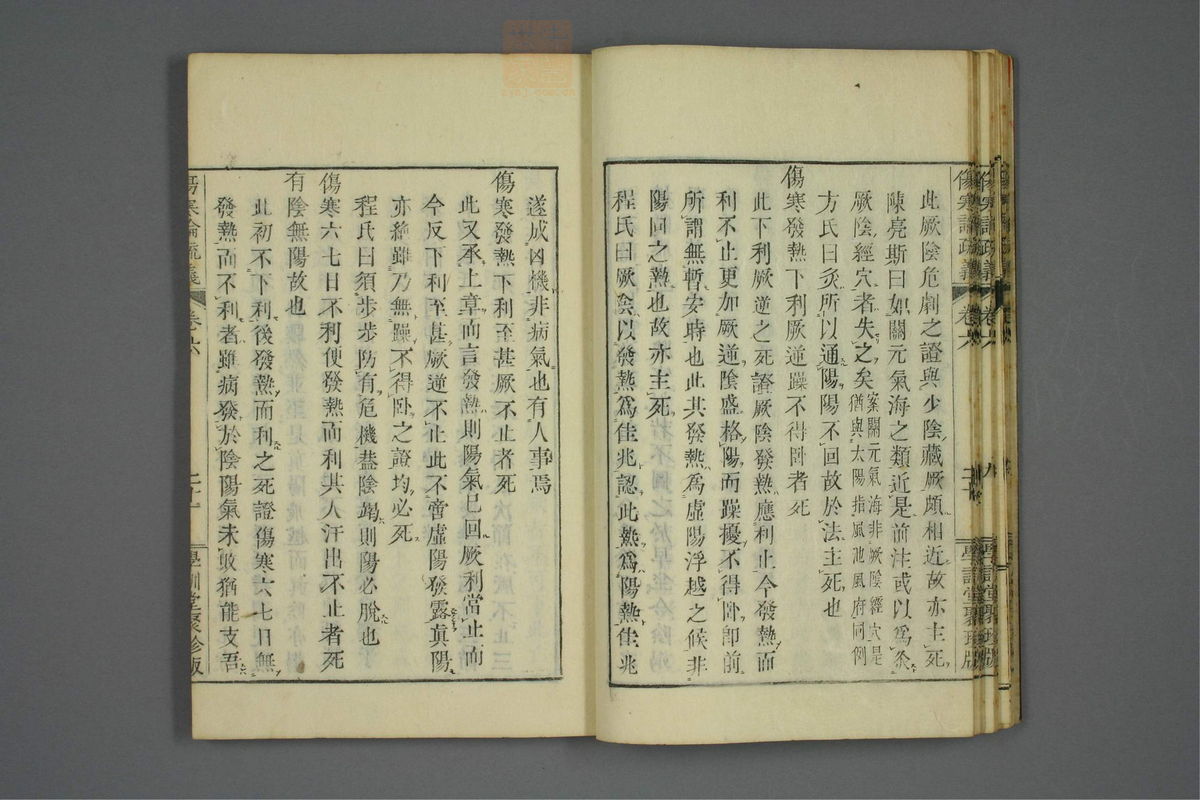 此厥陰危劇之證與少陰藏厥頗相近故亦主死
陳亮斯曰如關元氣海之類近是前注或以爲灸
厥陰經穴者失之矣案關元氣海非厥陰經穴是
猶與太陽指風池風府同例
方氏曰灸所以通陽陽不回故於法主死也
傷寒發熱下利厥逆躁不得臥者死
此下利厥逆之死證厥陰發熱應利止今發熱而
利不止更加厥逆陰盛格陽而躁擾不得臥卽前
所謂無暫安時也此其發熱爲虛陽浮越之候非
陽回之熱也故亦主死
程氏曰厥陰以發熱爲佳兆認此熱爲陽熱佳兆
遂成凶機非病氣也有人事焉
傷寒發熱下利至甚厥不止者死
此又承上章而言發熱則陽氣已回厥利當止而
今反下利至甚厥逆不止此不啻虛陽發露眞陽
亦絶雖乃無躁不得臥之證均必死
程氏曰須步步防有危機葢陰竭則陽必脫也
傷寒六七日不利便發熱而利其人汗出不止者死
有陰無陽故也
此初不下利後發熱而利之死證傷寒六七日無
發熱而不利者雖病發於陰陽氣未敗猶能支吾
傷寒論疏義
卷六
學訓堂聚珍版